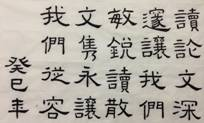 讀論文深
邃讓我們
敏銳讀散
文雋永讓
我們從容
癸巳年